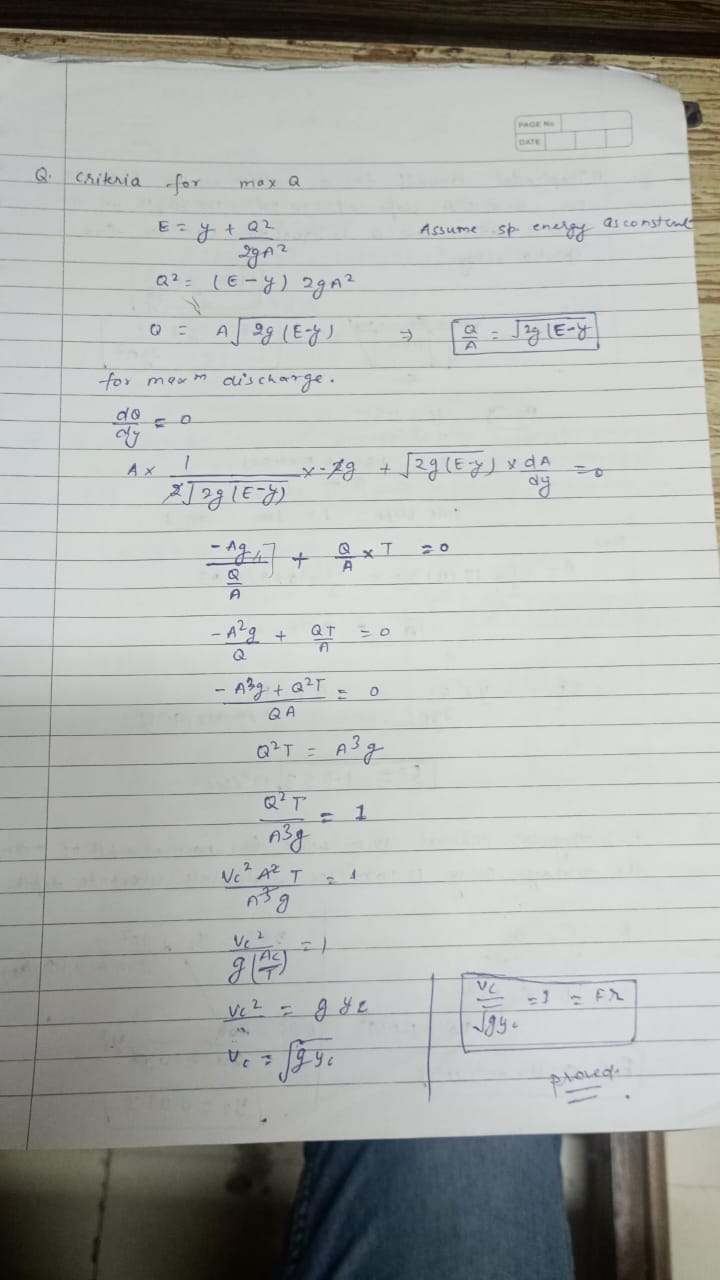 PAGE No
DATE
Q. Criteria for max Q
E = y + Q²/2gA² Assume sp. energy as constent
Q² = (E-y) 2gA²
Q = A√2g(E-y) ⇒ Q/A = √2g(E-y
for maxm discharge.
dQ/dy = 0
A x 1/2√2g(E-y) x -2g + √2g(E-y) x dA/dy = 0
-Ag/(Q/A) + Q/A x T = 0
-A²g/Q + QT/A = 0
-A³g + Q²T/QA = 0
Q²T = A³g
Q²T/A³g = 1
Vc² A² T/A³g = 1
Vc²/g(Ac/T) = 1
Vc² = g yc
Vc = √gyc
Vc/√gyc = 1 = Fr
proved.